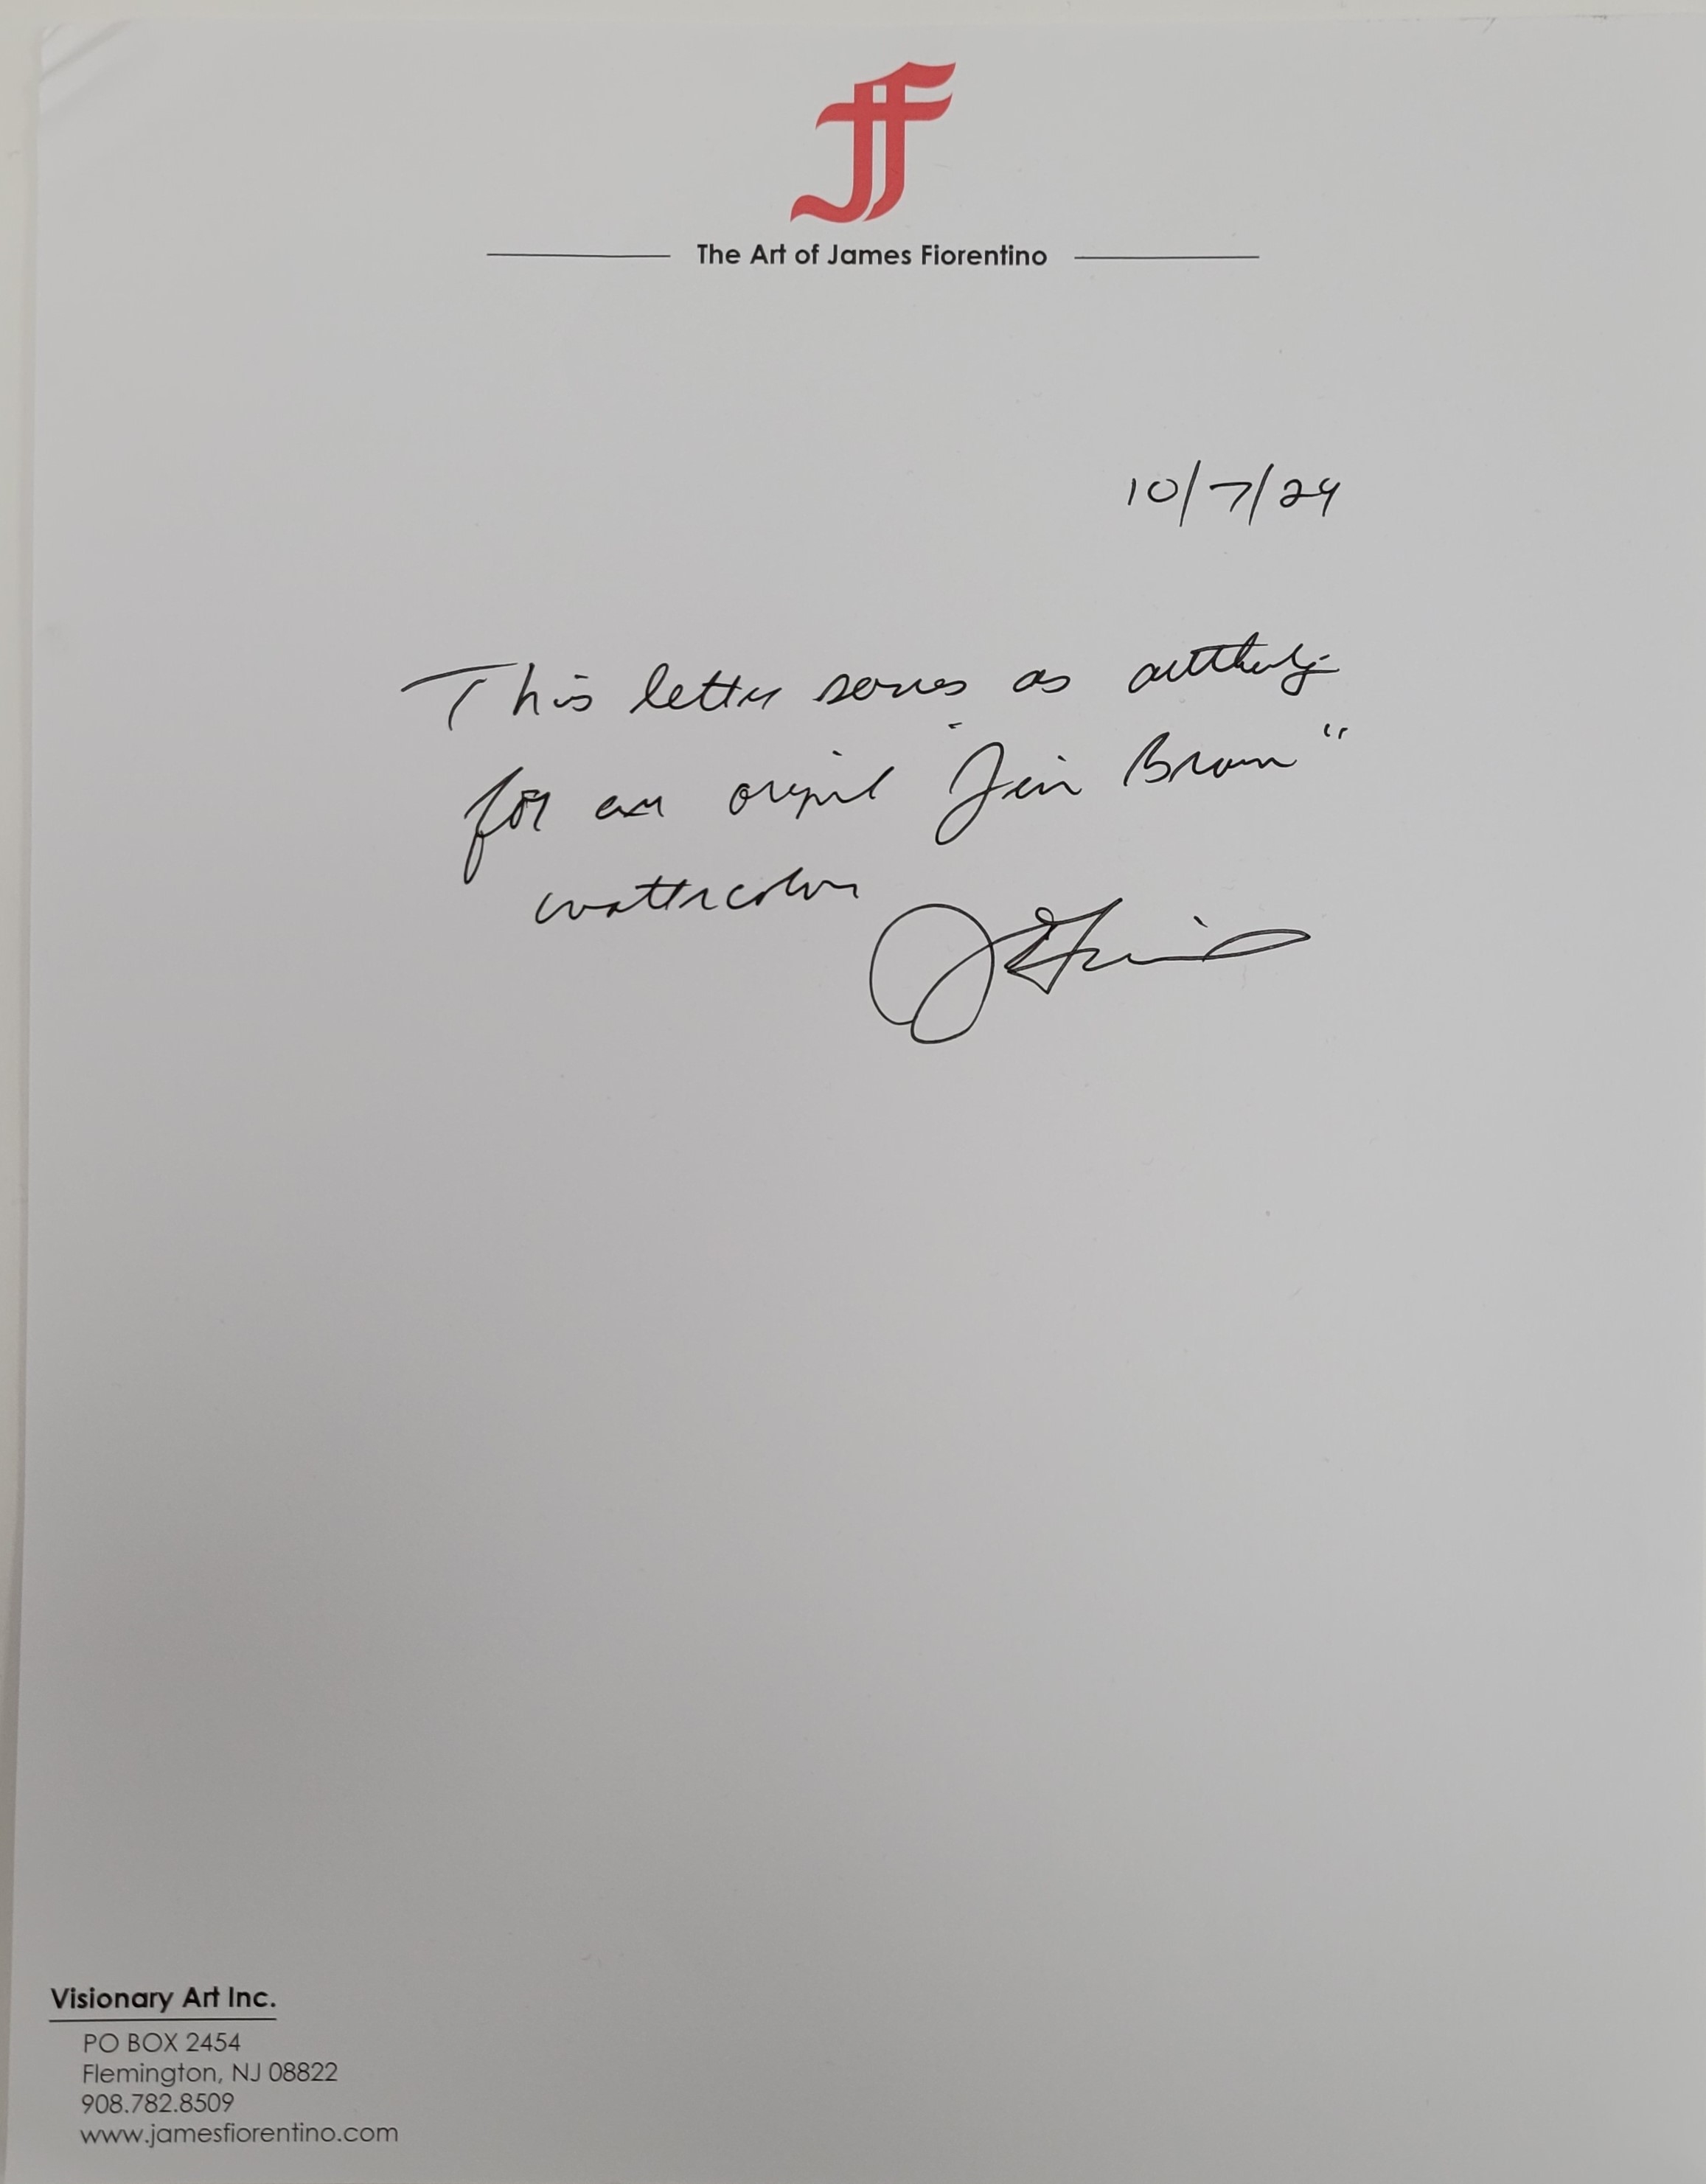 JF
The Art of James Fiorentino
10/7/24
This letter serves as
for an original "Jim Brown"
watercolor
Visionary Art Inc.
PO BOX 2454
Flemington, NJ 08822
908.782.8509
www.jamesfiorentino.com